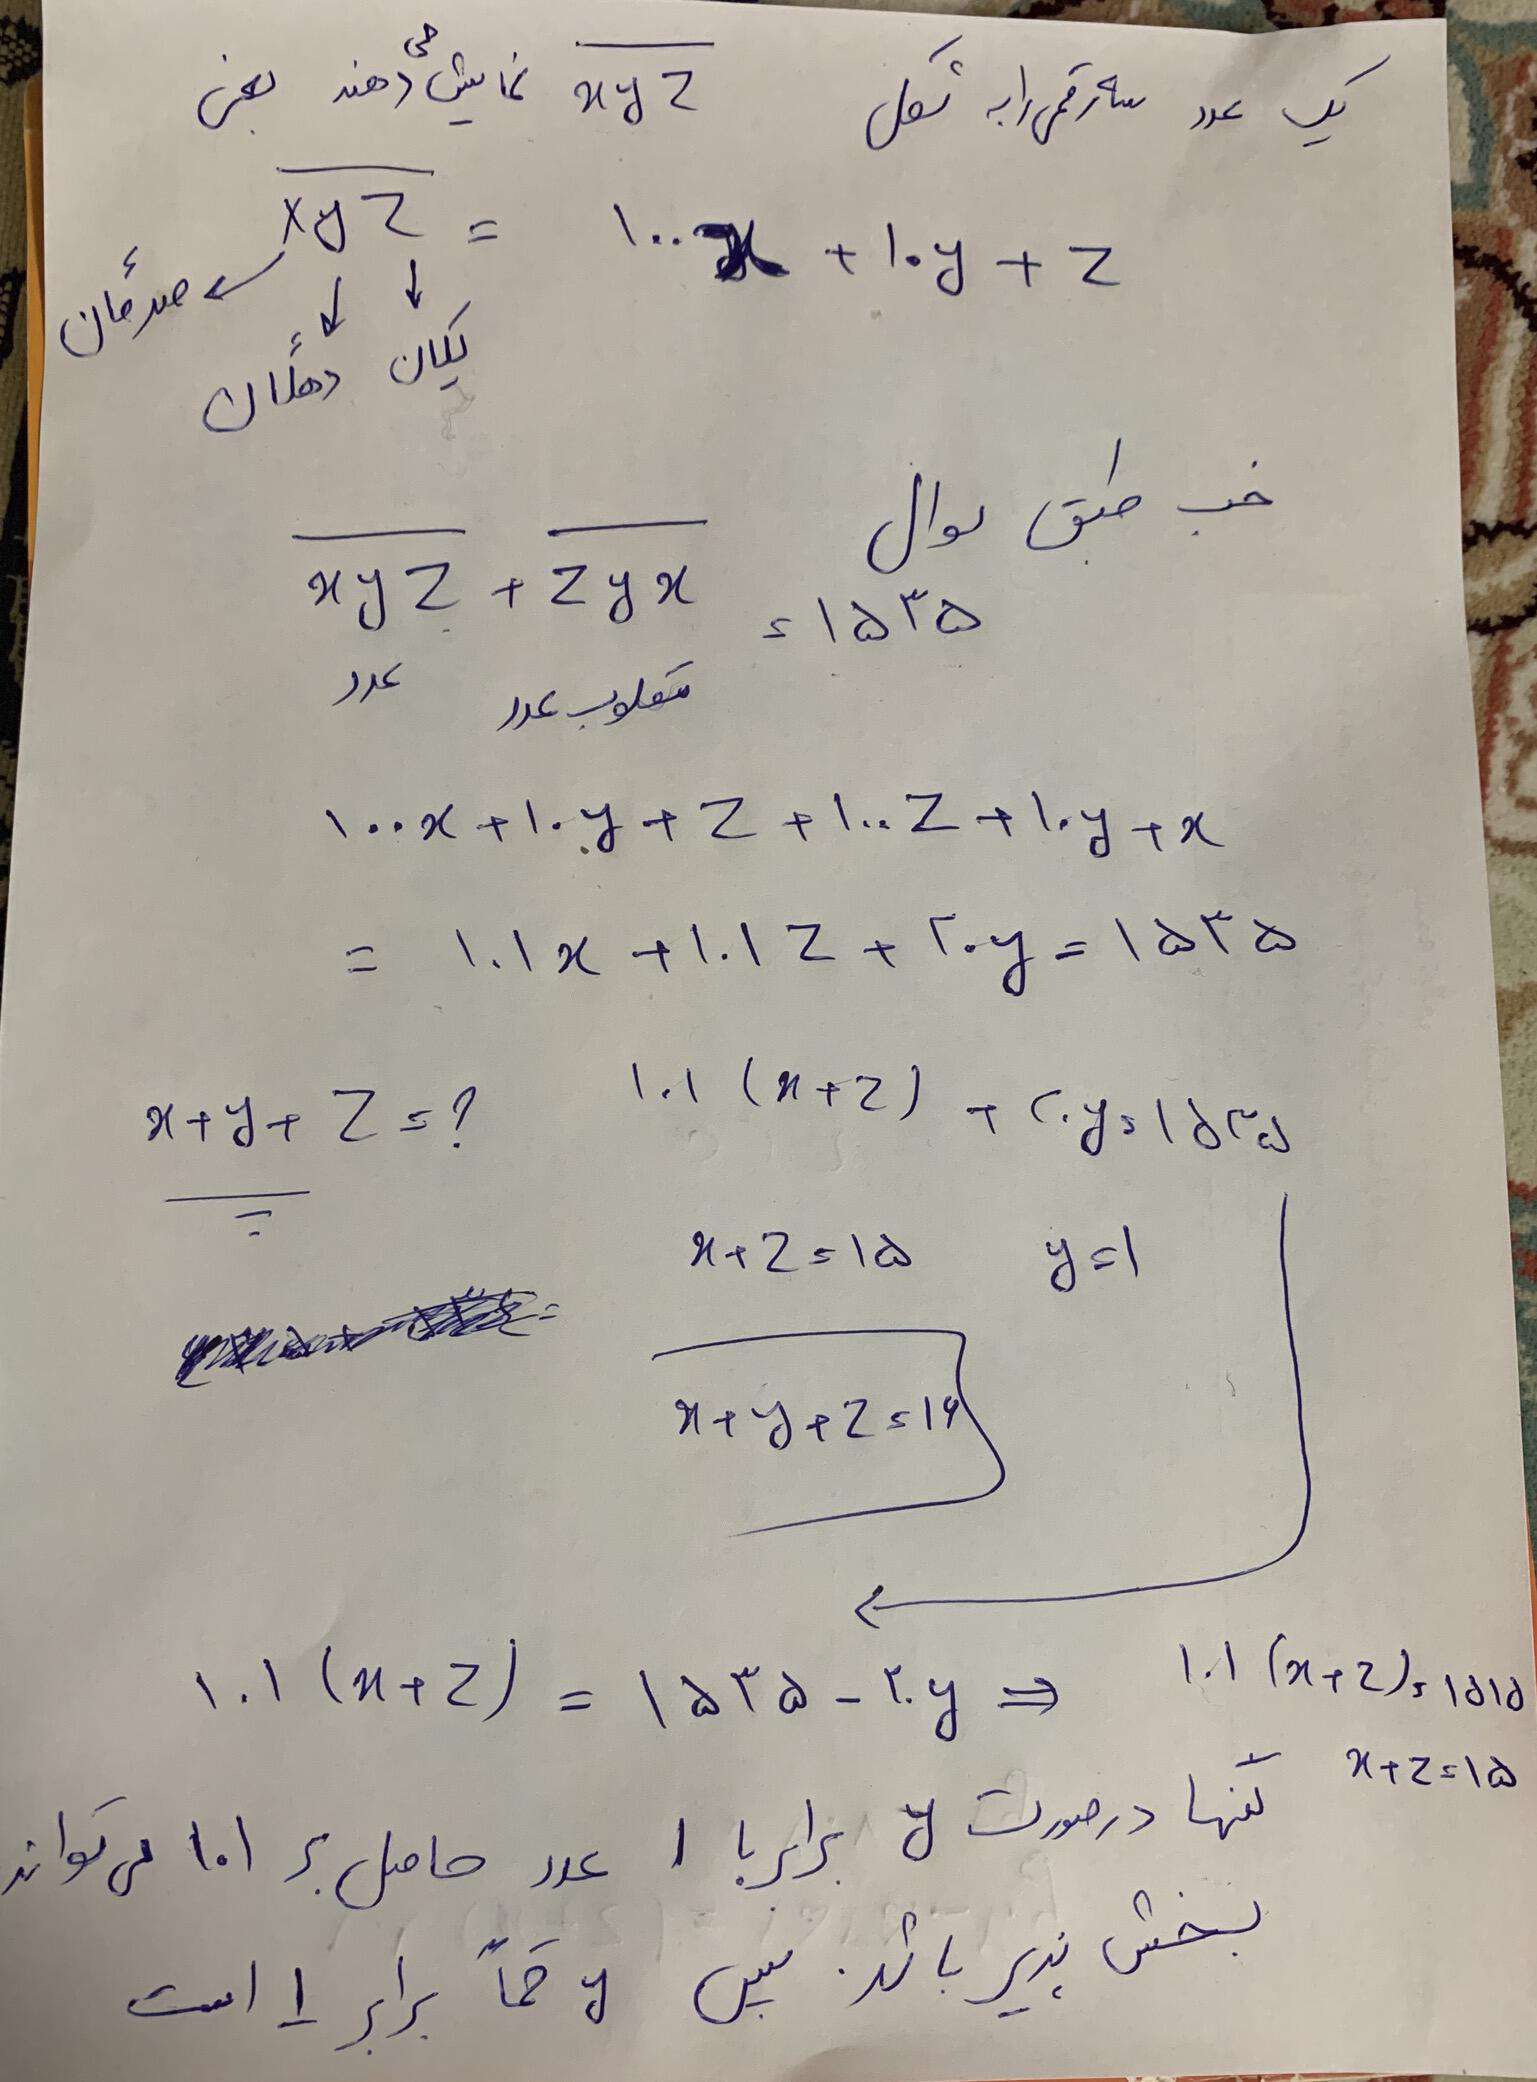 یک عدد سه رقمی را به شکل xyz نمایش می دهند یعنی
xyz = ۱۰۰x + ۱۰y + z
صدگان دهگان یکان
خب طبق سوال
xyz + zyx = ۱۵۳۵
عدد مقلوب عدد
۱۰۰x + ۱۰y + z + ۱۰۰z + ۱۰y + x
= ۱۰۱x + ۱۰۱z + ۲۰y = ۱۵۳۵
x+y+z=? ۱۰۱(x+z) + ۲۰y=۱۵۳۵
x+z=۱۵ y=۱
x+y+z=۱۶
۱۰۱(x+z) = ۱۵۳۵ - ۲۰y ⇒ ۱۰۱(x+z)=۱۵۱۵
x+z=۱۵
تنها درصورت y برابر با ۱ عدد حاصل بر ۱۰۱ می تواند
بخش پذیر باشد. پس y حتماً برابر ۱ است